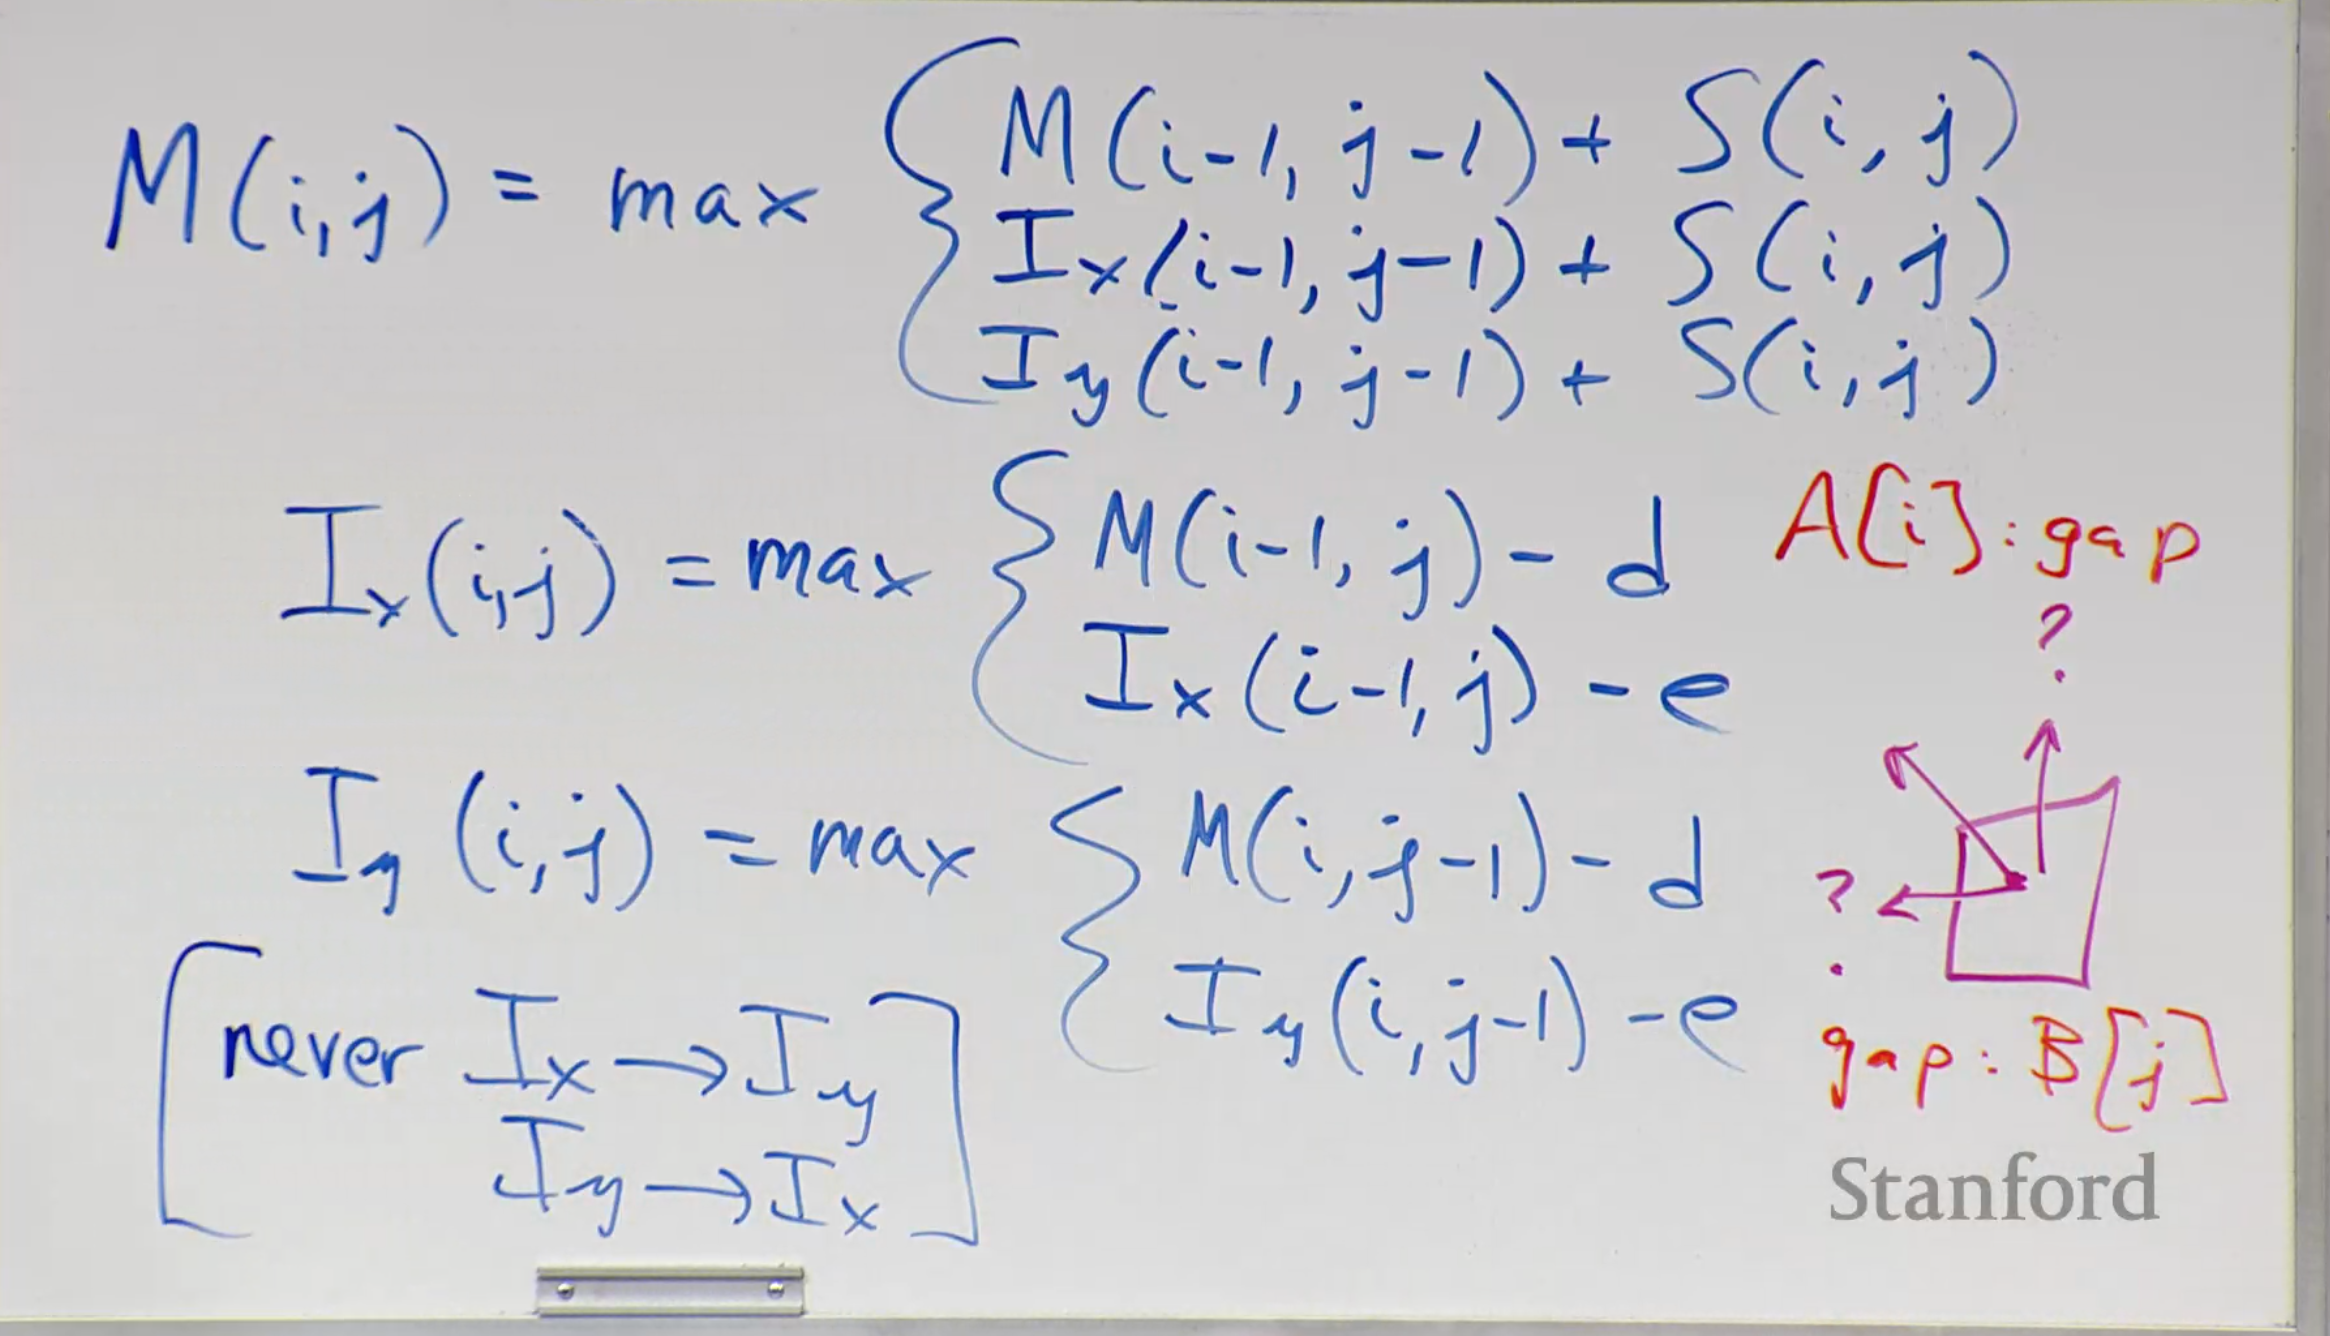 M(i,j) = max { M(i-1, j-1) + S(i, j)
I_x(i-1, j-1) + S(i, j)
I_y(i-1, j-1) + S(i, j)
I_x(i,j) = max { M(i-1, j) - d
I_x(i-1, j) - e
A[i] : gap
?
I_y(i,j) = max { M(i, j-1) - d
I_y(i, j-1) - e
?
gap : B[j]
[never I_x → I_y
I_y → I_x]
Stanford